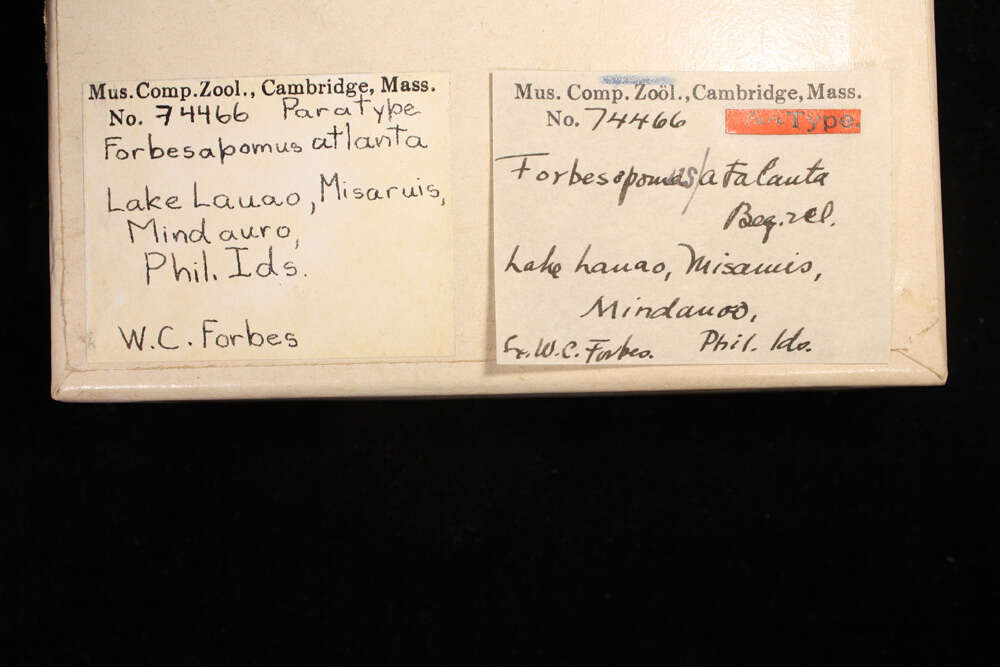 Mus. Comp. Zool., Cambridge, Mass.
No. 74466 Paratype
Forbesapomus atlanta
Lake Lauao, Misaruis,
Mindauro,
Phil. Ids.
W.C. Forbes
Mus. Comp. Zoöl., Cambridge, Mass.
No. 74466 Type.
Forbesopomus/atalanta
Beq. & Cl.
Lake Lanao, Misamis,
Mindanao,
Phil. Ids.
Ex. W.C. Forbes.